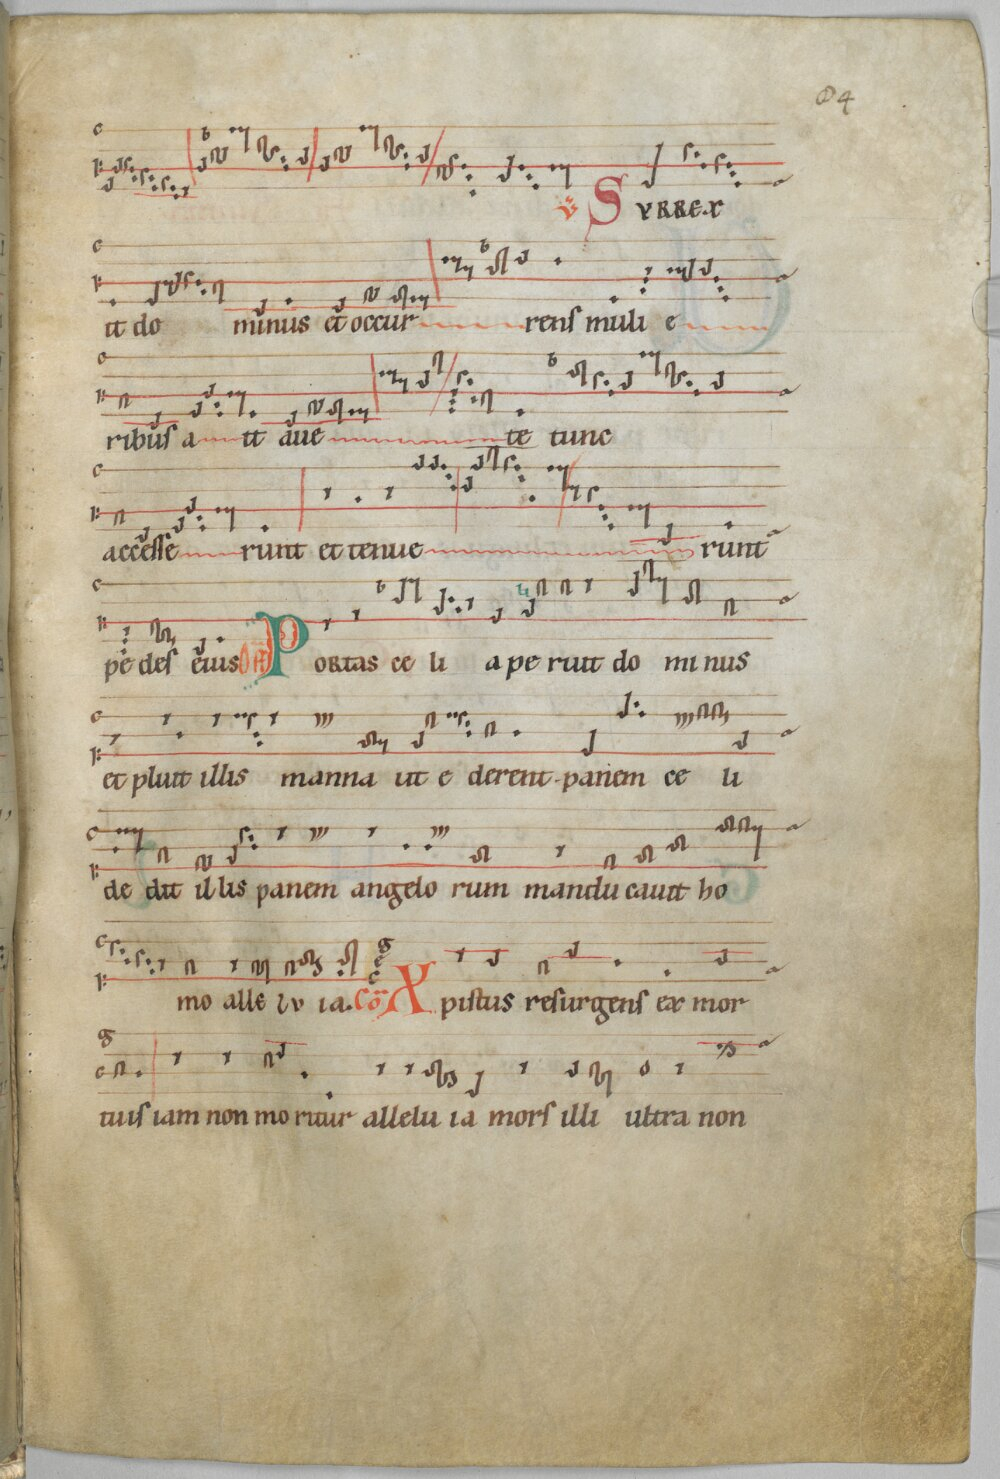 94
V SVRREX
it do minus et occur rens muli e
ribus a it aue te tunc
accesse runt et tenue runt
pe des eius Of PORtas ce li a pe ruit do mi nus
et pluit illis manna ut e derent panem ce li
de dit illis panem angelo rum mandu cauit ho
mo alle lv ia. Co Xpistus resurgens ex mor
tuis iam non mo ritur allelu ia mors illi ultra non